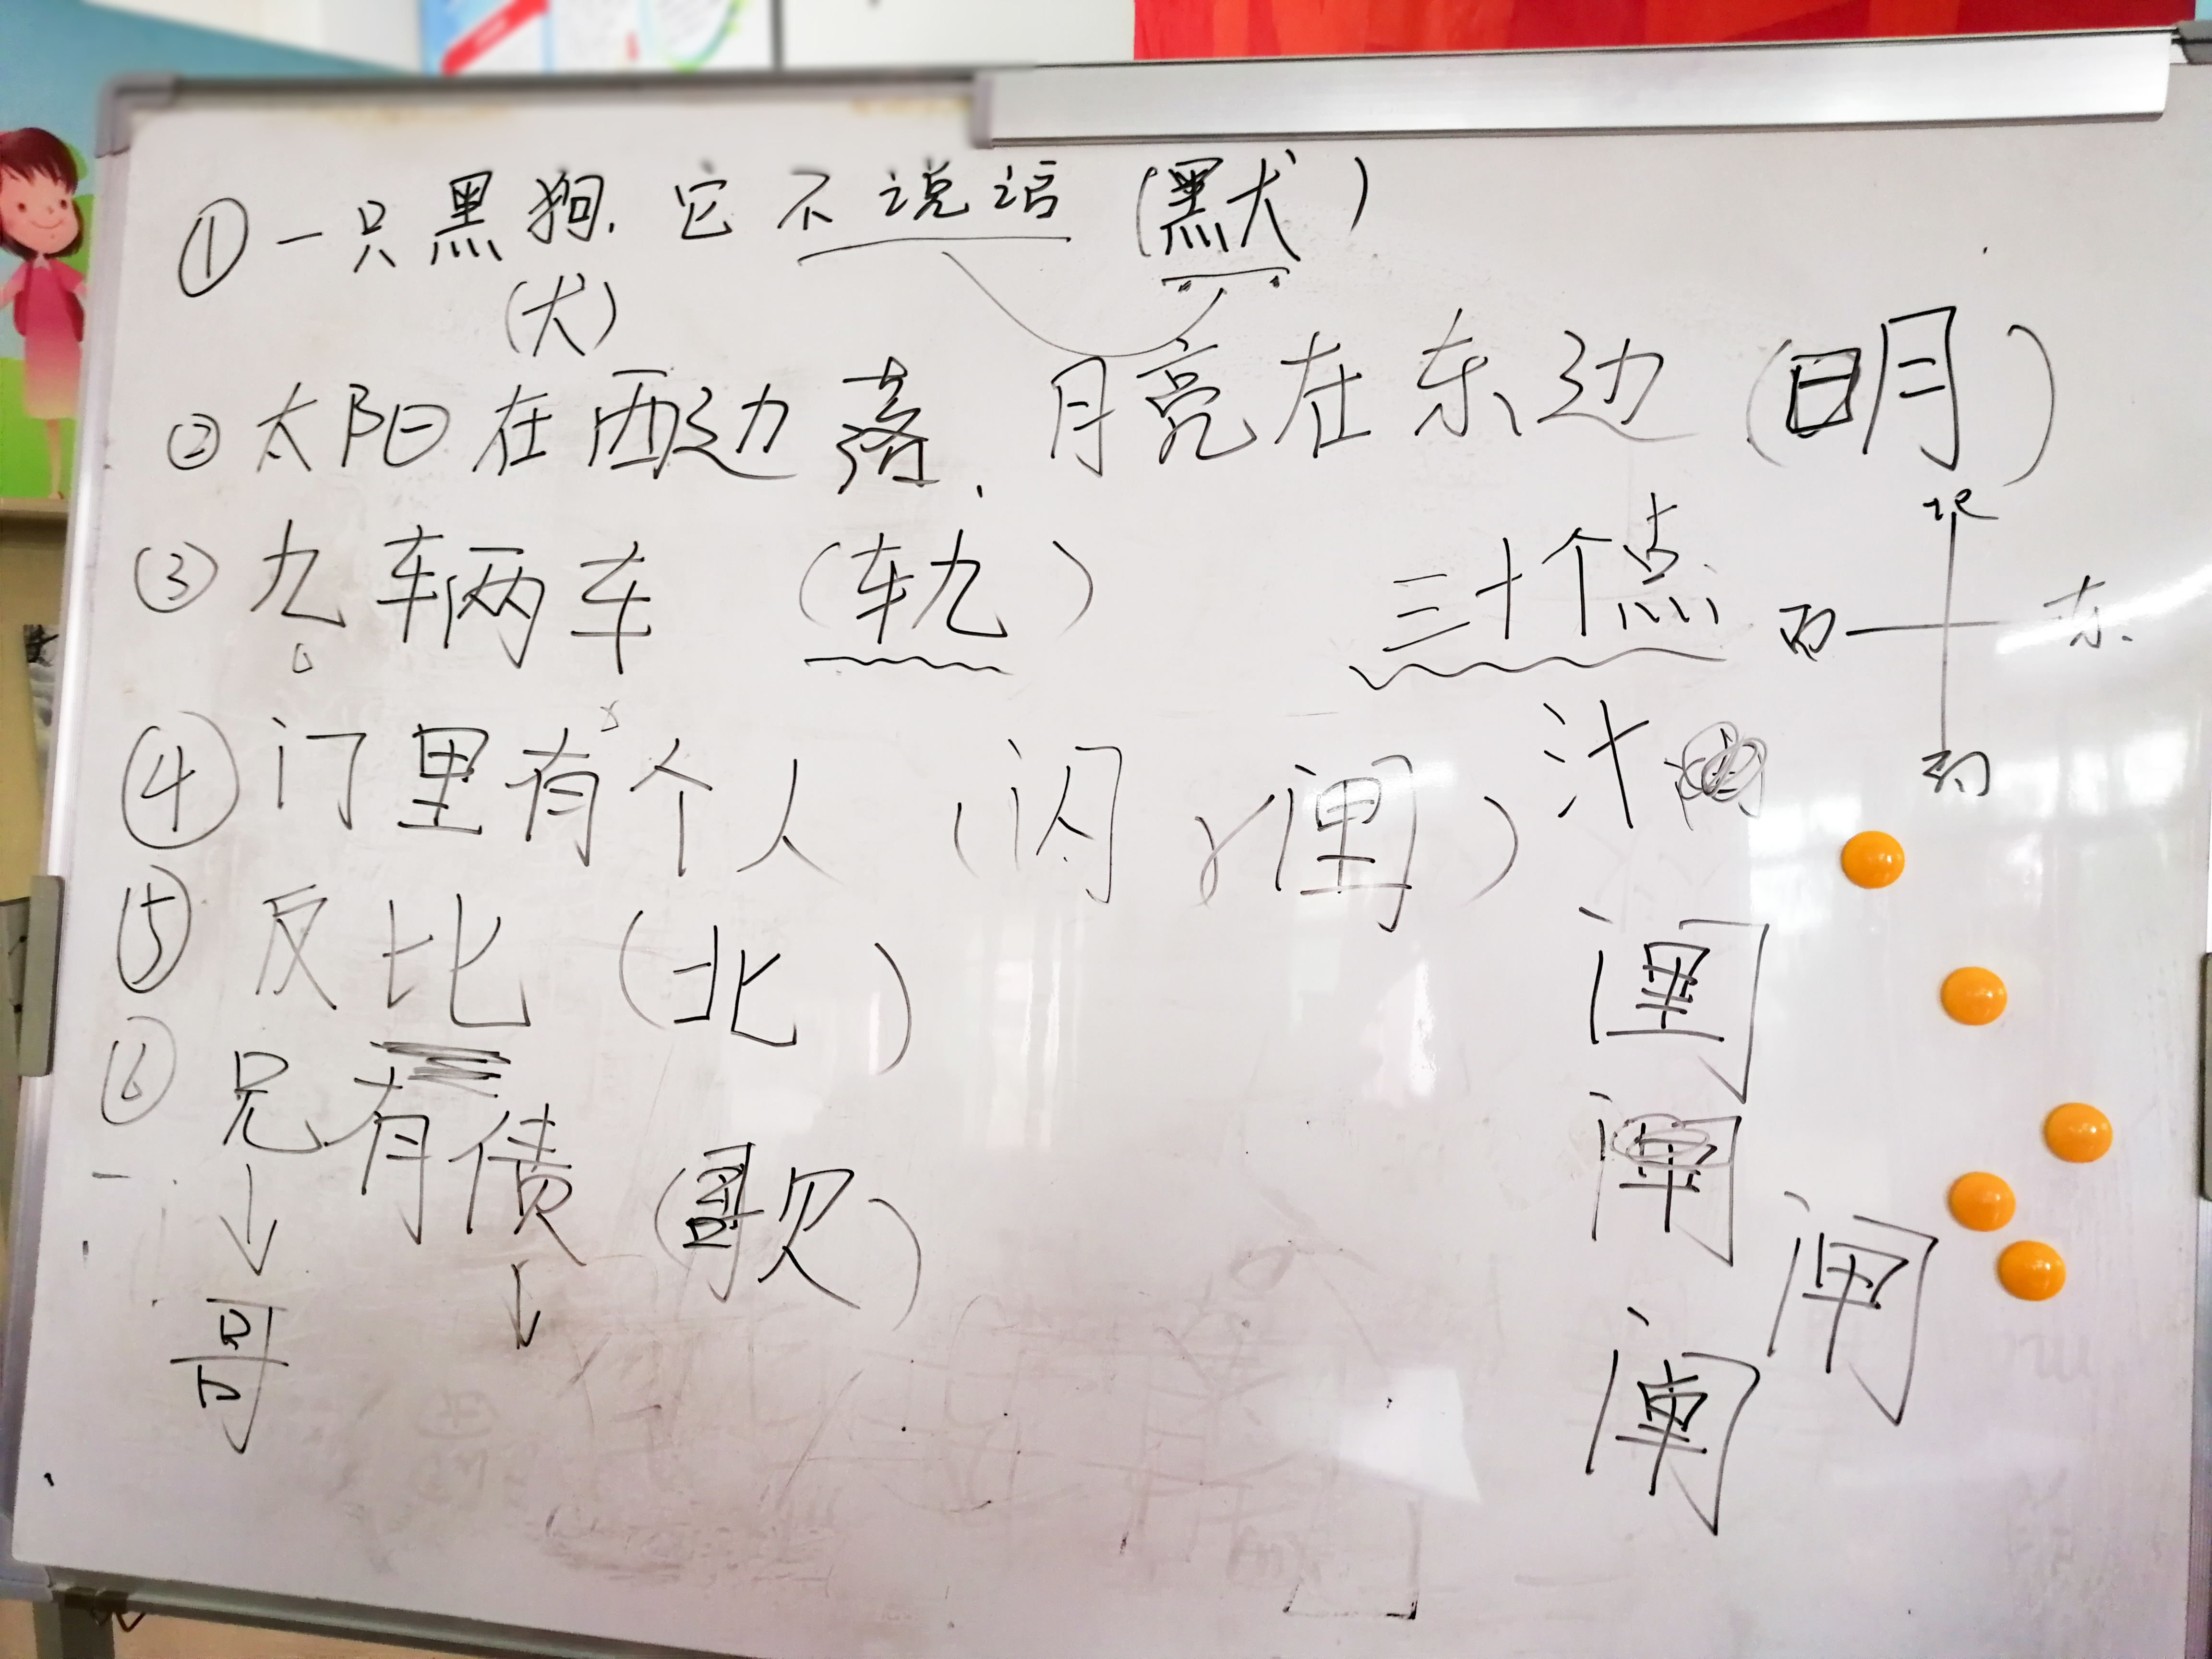 ①一只黑狗.它不说话(默)
(犬)
②太阳在西边落、月亮在东边(明)
③九辆车(轨)
三十个点
汁
北
西 东
④门里有个人(闪
⑤反比(北)
⑥兄有债(歌)
↓ ↓
哥
闸